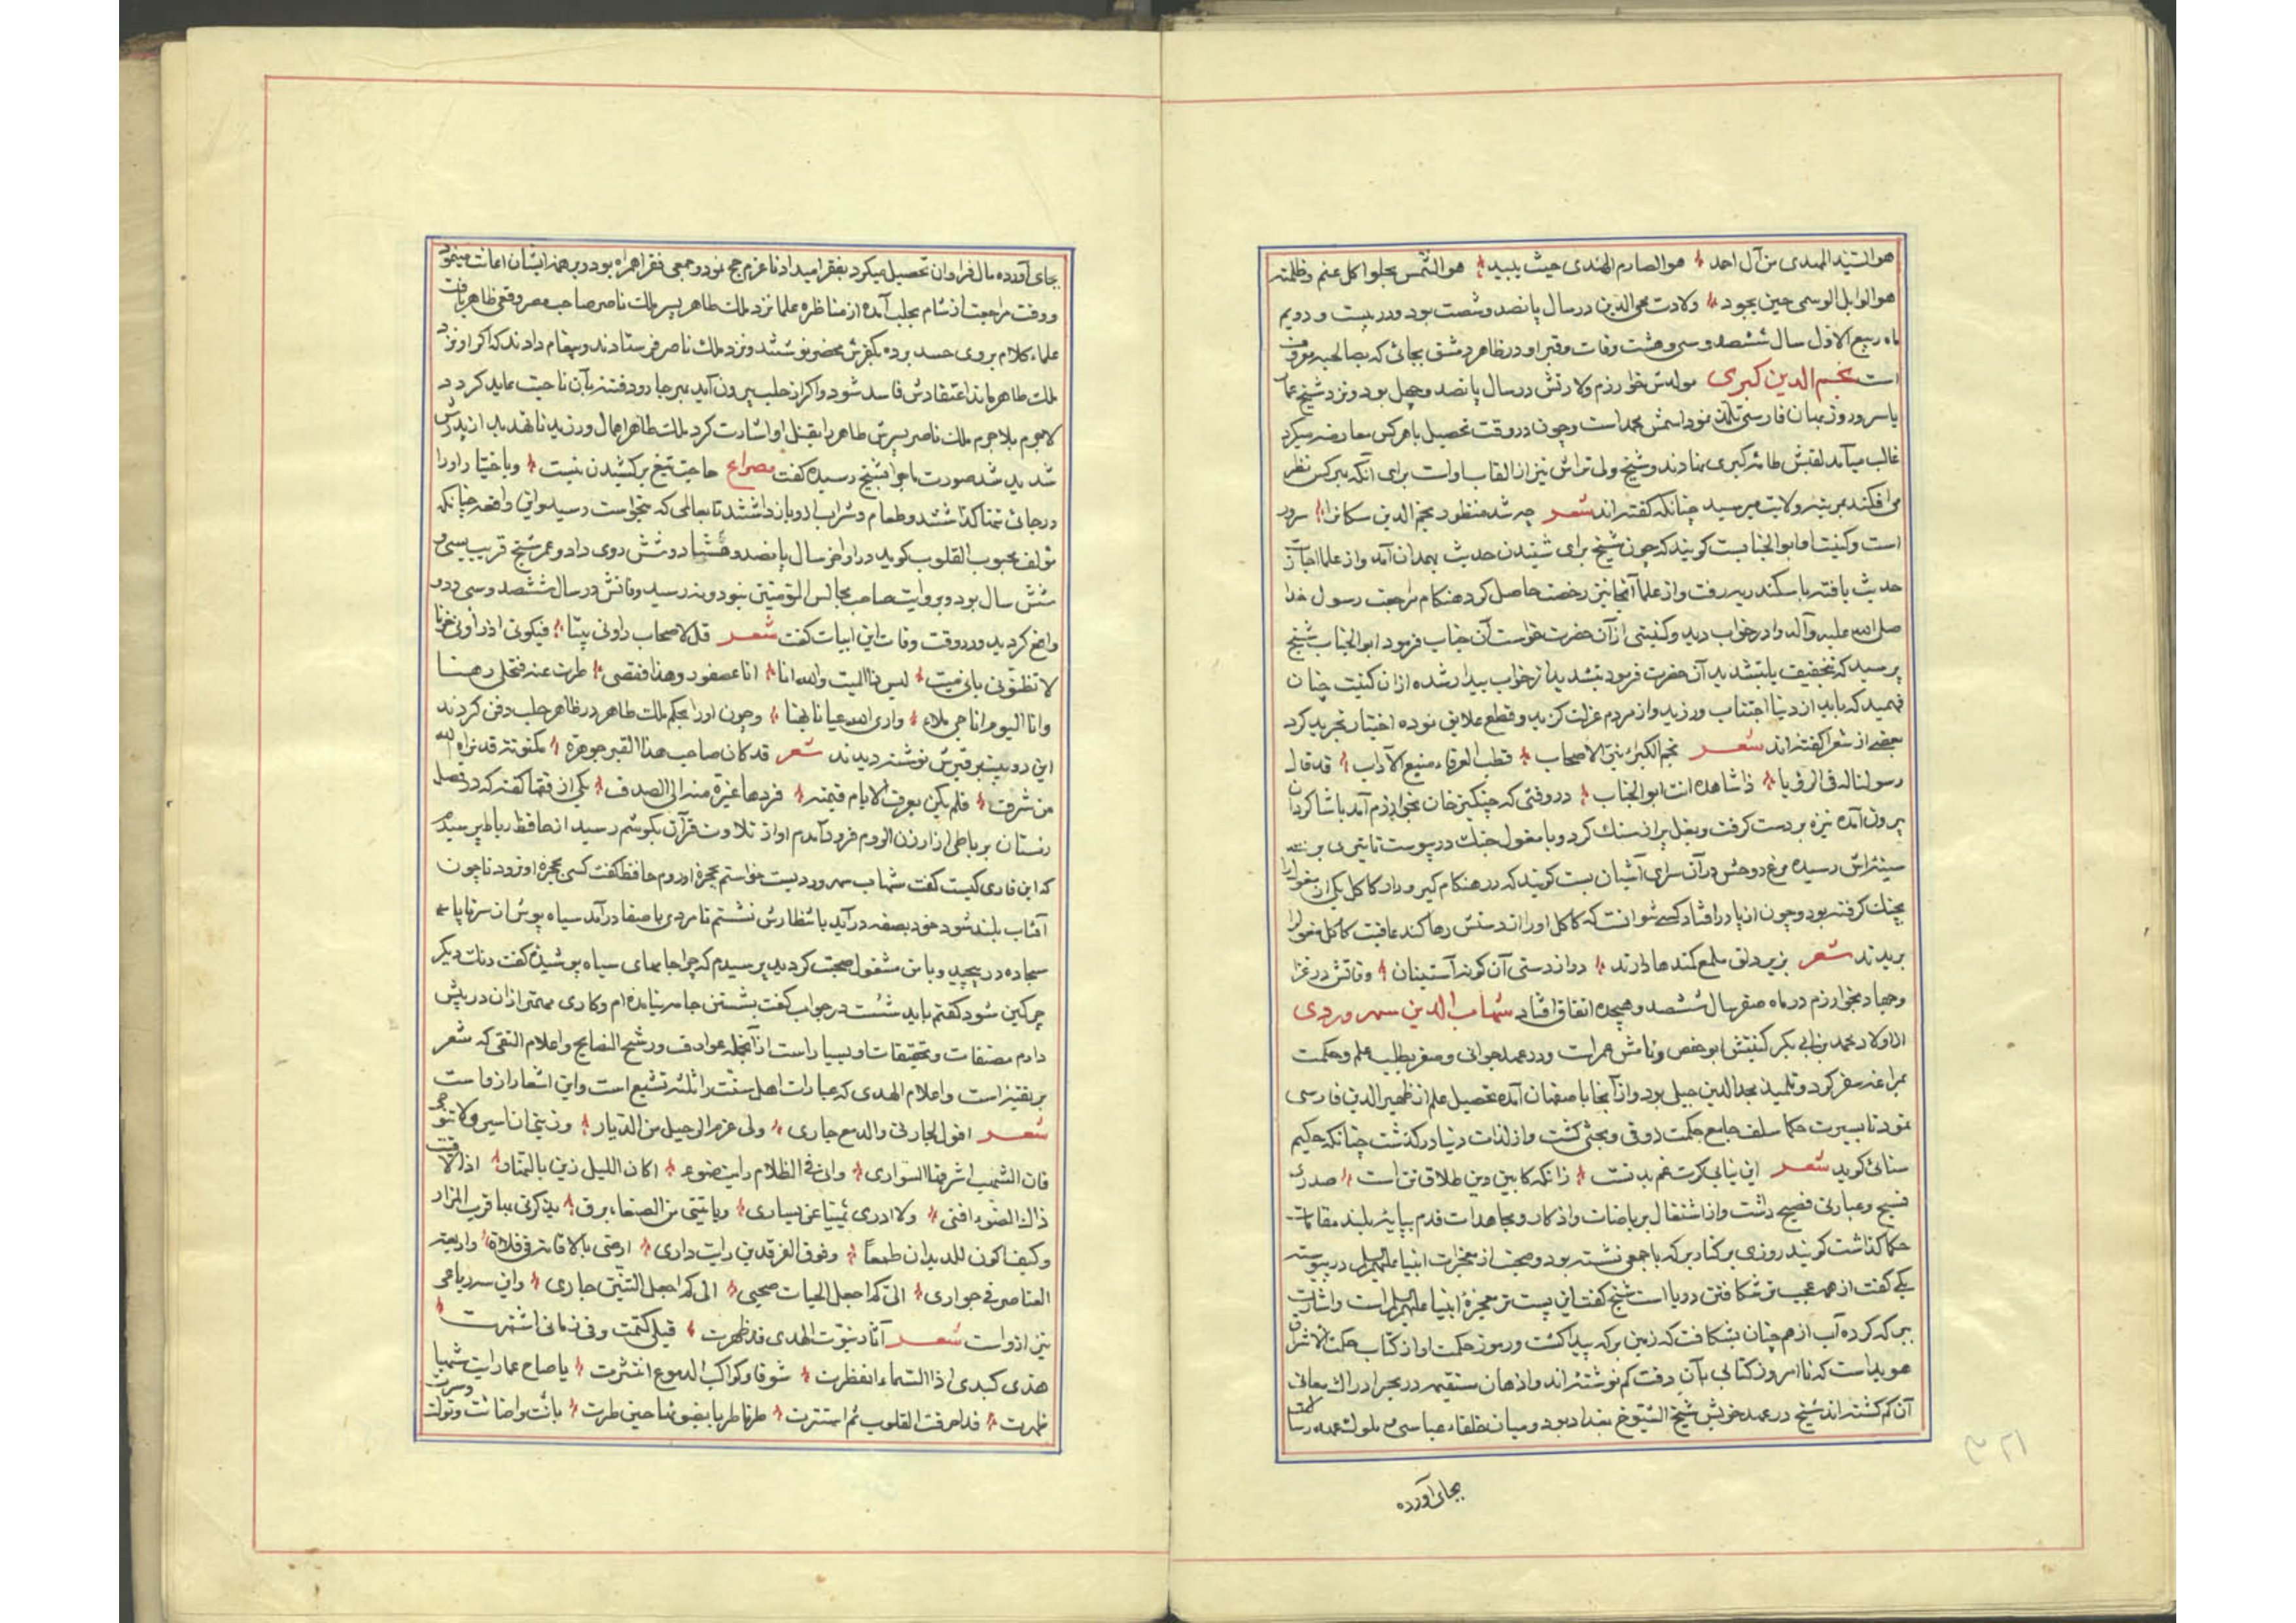 هو السید المهدی من آل احمد هو الصارم الهندی حیث یبید هو الشمس یجلوا کل غم و ظلمة
هو الوابل الوسمی حین یجود ولادت محی الدین در سال پانصد و شصت بود و در بیست و دویم
ماه ربیع الاول سال ششصد و سی و هشت وفات و قبر او در ظاهر دمشق بجائی که بصالحیه معروف
است نجم الدین کبری مولدش خوارزم ولادتش در سال پانصد و چهل بود و نزد شیخ عمار
یاسر و روزبهان فارسی تلمذ نمود اسمش محمد است و چون در وقت تحصیل با هر کس معارضه میکرد
غالب میآمد لقبش طامه کبری نهادند و شیخ ولی تراش نیز از القاب اوست برای آنکه بهر کس نظر
می افکند بمرتبه ولایت میرسید چنانکه گفته اند شعر چه شد منظور نجم الدین سکانرا سرور
است و کنیت او ابو الجنابست گویند که چون شیخ برای شنیدن حدیث بهمدان آمد و از علما اجازت
حدیث یافته باسکندریه رفت و از علما آنجا نیز رخصت حاصل کرد هنگام مراجعت رسول خدا
صلی الله علیه و آله را در خواب دید و کنیتی از آن حضرت خواست آن جناب فرمود ابو الجناب شیخ
پرسید که بتخفیف یا بتشدید آن حضرت فرمود بتشدید از خواب بیدار شده از آن کنیت چنان
فهمید که باید از دنیا اجتناب ورزید و از مردم عزلت گزید و قطع علایق نموده اختیار تجرید کرد
بعضی از شعرا گفته اند شعر نجم الکبراء نیّر الاصحاب قطب العرفاء منیع الآداب قد قال
رسولنا له فی الرؤیا ذا شاهده انت ابو الجناب در وقتی که چنگیز خان بخوارزم آمد با شاگردان
بیرون آمده نیزه بر دست گرفت و بغل پر از سنگ کرد و با مغول جنگ در پیوست تا تیری بر
سینه اش رسیده مرغ روحش در آن سرای آشیان بست گویند که در هنگام گیر و دار کاکل یکی از مغول را
بچنگ گرفته بود و چون از پا در افتاد کسی نتوانست که کاکل او را از دستش رها کند عاقبت کاکل مغول را
بریدند شعر بزیر دلق ملمع کمندها دارند دراز دستی این کوته آستینان وفاتش در غزا
و جهاد بخوارزم در ماه صفر سال ششصد و هیجده اتفاق افتاد شهاب الدین سهروردی
از اولاد محمد بن ابی بکر کنیتش ابو حفص و نامش عمر است و در عهد جوانی و صغر بطلب علم و حکمت
بمراغه سفر کرد و تلمیذ مجد الدین جیلی بود و از آنجا باصفهان آمده تحصیل علم از ظهیر الدین فارسی
نمود تا بسیرت حکما سلف جامع حکمت ذوقی و بحثی گشت و از لذات دنیا در گذشت چنانکه حکیم
سنائی گوید شعر این نیابی گرت غم بدنت زانکه کابین دین طلاق تن است صدری
فسیح و عبارتی فصیح داشت و از اشتغال بریاضات و اذکار و مجاهدات قدم بپایه بلند مقامات
حکما گذاشت گویند روزی بر کنار برکه با جمعی نشسته بود و صحبت از معجزات انبیا علیهم السلام در پیوست
یکی گفت از همه عجیب تر شکافتن دریا است شیخ گفت این پست تر معجزه انبیا علیهم السلام است و اشارت
ببرکه کرده آب از هم چنان بشکافت که زمین برکه پیدا گشت و رموز حکمت او از کتاب حکمت الاشراق
هویداست که تا امروز کتابی بآن دقت کم نوشته اند و اذهان مستقیمه در بحر ادراک معانی
آن گم گشته اند شیخ در عهد خویش شیخ الشیوخ بغداد بود و میان خلفاء عباسی و ملوک عهد رسالت
بجای آورده
بجای آورده مال فراوان تحصیل میکرد بفقرا میداد تا عزم حج نمود و جمعی فقرا همراه بود و بر همه ایشان اعانت مینمود
و وقت مراجعت از شام بحلب آمده از مناظره علما نزد ملک طاهر پسر ملک ناصر صاحب مصر وقعی ظاهر یافت
علماء کلام بر وی حسد برده بکفرش محضر نوشتند و نزد ملک ناصر فرستادند و پیغام دادند که اگر او نزد
ملک طاهر بماند اعتقادش فاسد شود و اگر از حلب بیرون آید بهر جا رود فتنه بآن ناحیت عاید گردد
لاجرم بلاجرم ملک ناصر پسرش طاهر را بقتل او اشارت کرد ملک طاهر اهمال ورزید تا تهدید از پدرش
شدید شد صورت ماجرا بشیخ رسیده گفت مصراع حاجت تیغ برکشیدن نیست و باختیار او را
در جائی تنها گذاشتند و طعام و شراب از او باز داشتند تا بعالمی که میخواست رسید و این واقعه چنانکه
مؤلف محبوب القلوب گوید در اواخر سال پانصد و هشتاد و شش روی داد و عمر شیخ قریب بسی و
شش سال بود و بروایت صاحب مجالس المؤمنین بنود و نه رسید وفاتش در سال ششصد و سی و دو
واقع گردید و در وقت وفات این ابیات گفت شعر قل لاصحاب راونی میتا فبکونی اذ راونی حزنا
لا تظنونی بانی میت لیس ذا المیت والله انا انا عصفور و هذا قفصی طرت عنه فتخلی رهنا
و انا الیوم اناجی ملاء و اری الله عیانا بهنا و چون او را بحکم ملک طاهر در ظاهر حلب دفن کردند
این دو بیت بر قبرش نوشته دیدند شعر قد کان صاحب هذا القبر جوهرة مکنونة قد براه الله
من شرف فلم یکن یعرف الایام قیمته فردها غیرة منه الی الصدف یکی از فقها گفته که در فصل
زمستان برباطی از ارزن الروم فرود آمدم اواز تلاوت قرآن بگوشم رسید از حافظ رباط پرسیدم
که این قاری کیست گفت شهاب سهروردیست خواستم بحجره او روم حافظ گفت کسی بحجره او نرود تا چون
آفتاب بلند شود خود بصفه درآید بانتظارش نشستم تا مردی باصفا درآمد سیاه پوش از سر تا پای
سجاده در پیچید و با من مشغول صحبت گردید پرسیدم که چرا جامهای سیاه پوشیدی گفت رنگ دیگر
چرکین شود گفتم باید شست در جواب گفت بشستن جامه نیامده ام و کاری مهمتر از آن در پیش
دارم مصنفات و تحقیقات او بسیار است از آنجمله عوارف و رشح النصایح و اعلام التقی که شعر
بر تقیه است و اعلام الهدی که عبارات اهل سنت را ثلثه تشیع است و این اشعار از اوست
شعر اقول لجارتی و الدمع جاری ولی عزم الرحیل من الدیار ذرینی ان اسیر ولا تنوحی
فان الشهب اشرفها السواری و انی فی الظلام رایت ضوء اکان اللیل زین بالنهار اذا لاقیت
ذاک الضوء افنی ولا ادری یمینا عن یساری و یاتینی من الصنعاء برق یذکرنی بها قرب المزار
و کیف اکون للدیدان طعما و فوق الفرقدین رایت داری ارضی بالاقامة فی فلاة و اربعة
العناصر فی جواری الی کم اجعل الحیات صحبی الی کم اجعل التنین جاری و این سه رباعی
نیز از اوست شعر آثار نبوت الهدی قد ظهرت قبلی کتمت و فی زمانی اشتهرت
هذی کبدی اذا السماء انفطرت شوقا و کواکب الدموع انتثرت یا صاح اما رایت شهبا
ظهرت قد احرقت القلوب ثم استترت طرنا طربا بضوئها حین طرت بانت و اضائت و تولت و سرت